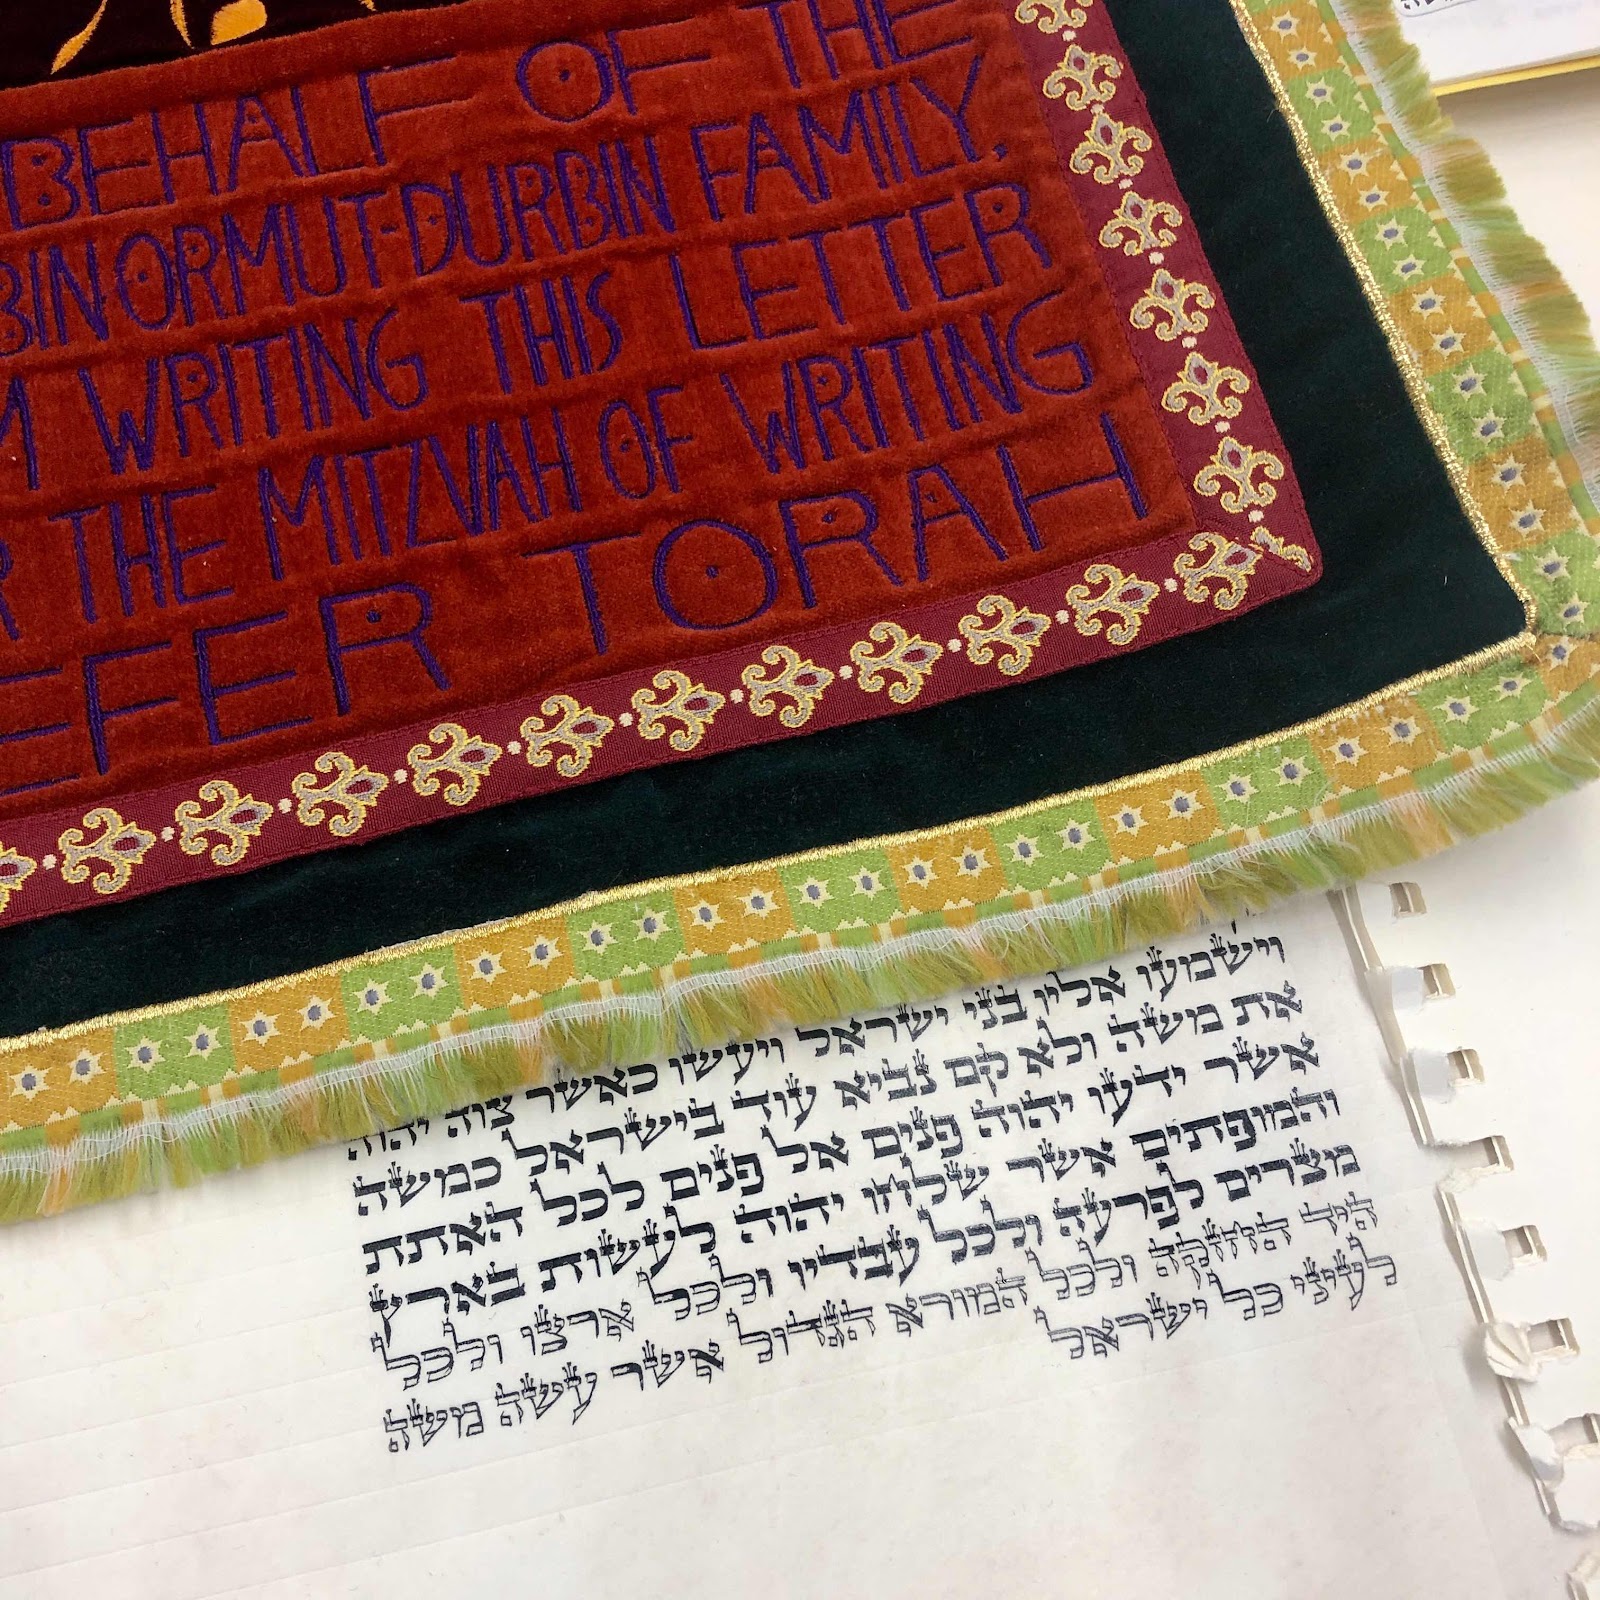 BEHALF OF THE
BINORMUT-DURBIN FAMILY,
M WRITING THIS LETTER
R THE MITZVAH OF WRITING
EFER TORAH
וישמעו אליו בני ישראל ויעשו כאשר צוה יהוה
את משה ולא קם נביא עוד בישראל כמשה
אשר ידעו יהוה פנים אל פנים לכל האתת
והמופתים אשר שלחו יהוה לעשות בארץ
מצרים לפרעה ולכל עבדיו ולכל ארצו ולכל
היד החזקה ולכל המורא הגדול אשר עשה משה
לעיני כל ישראל